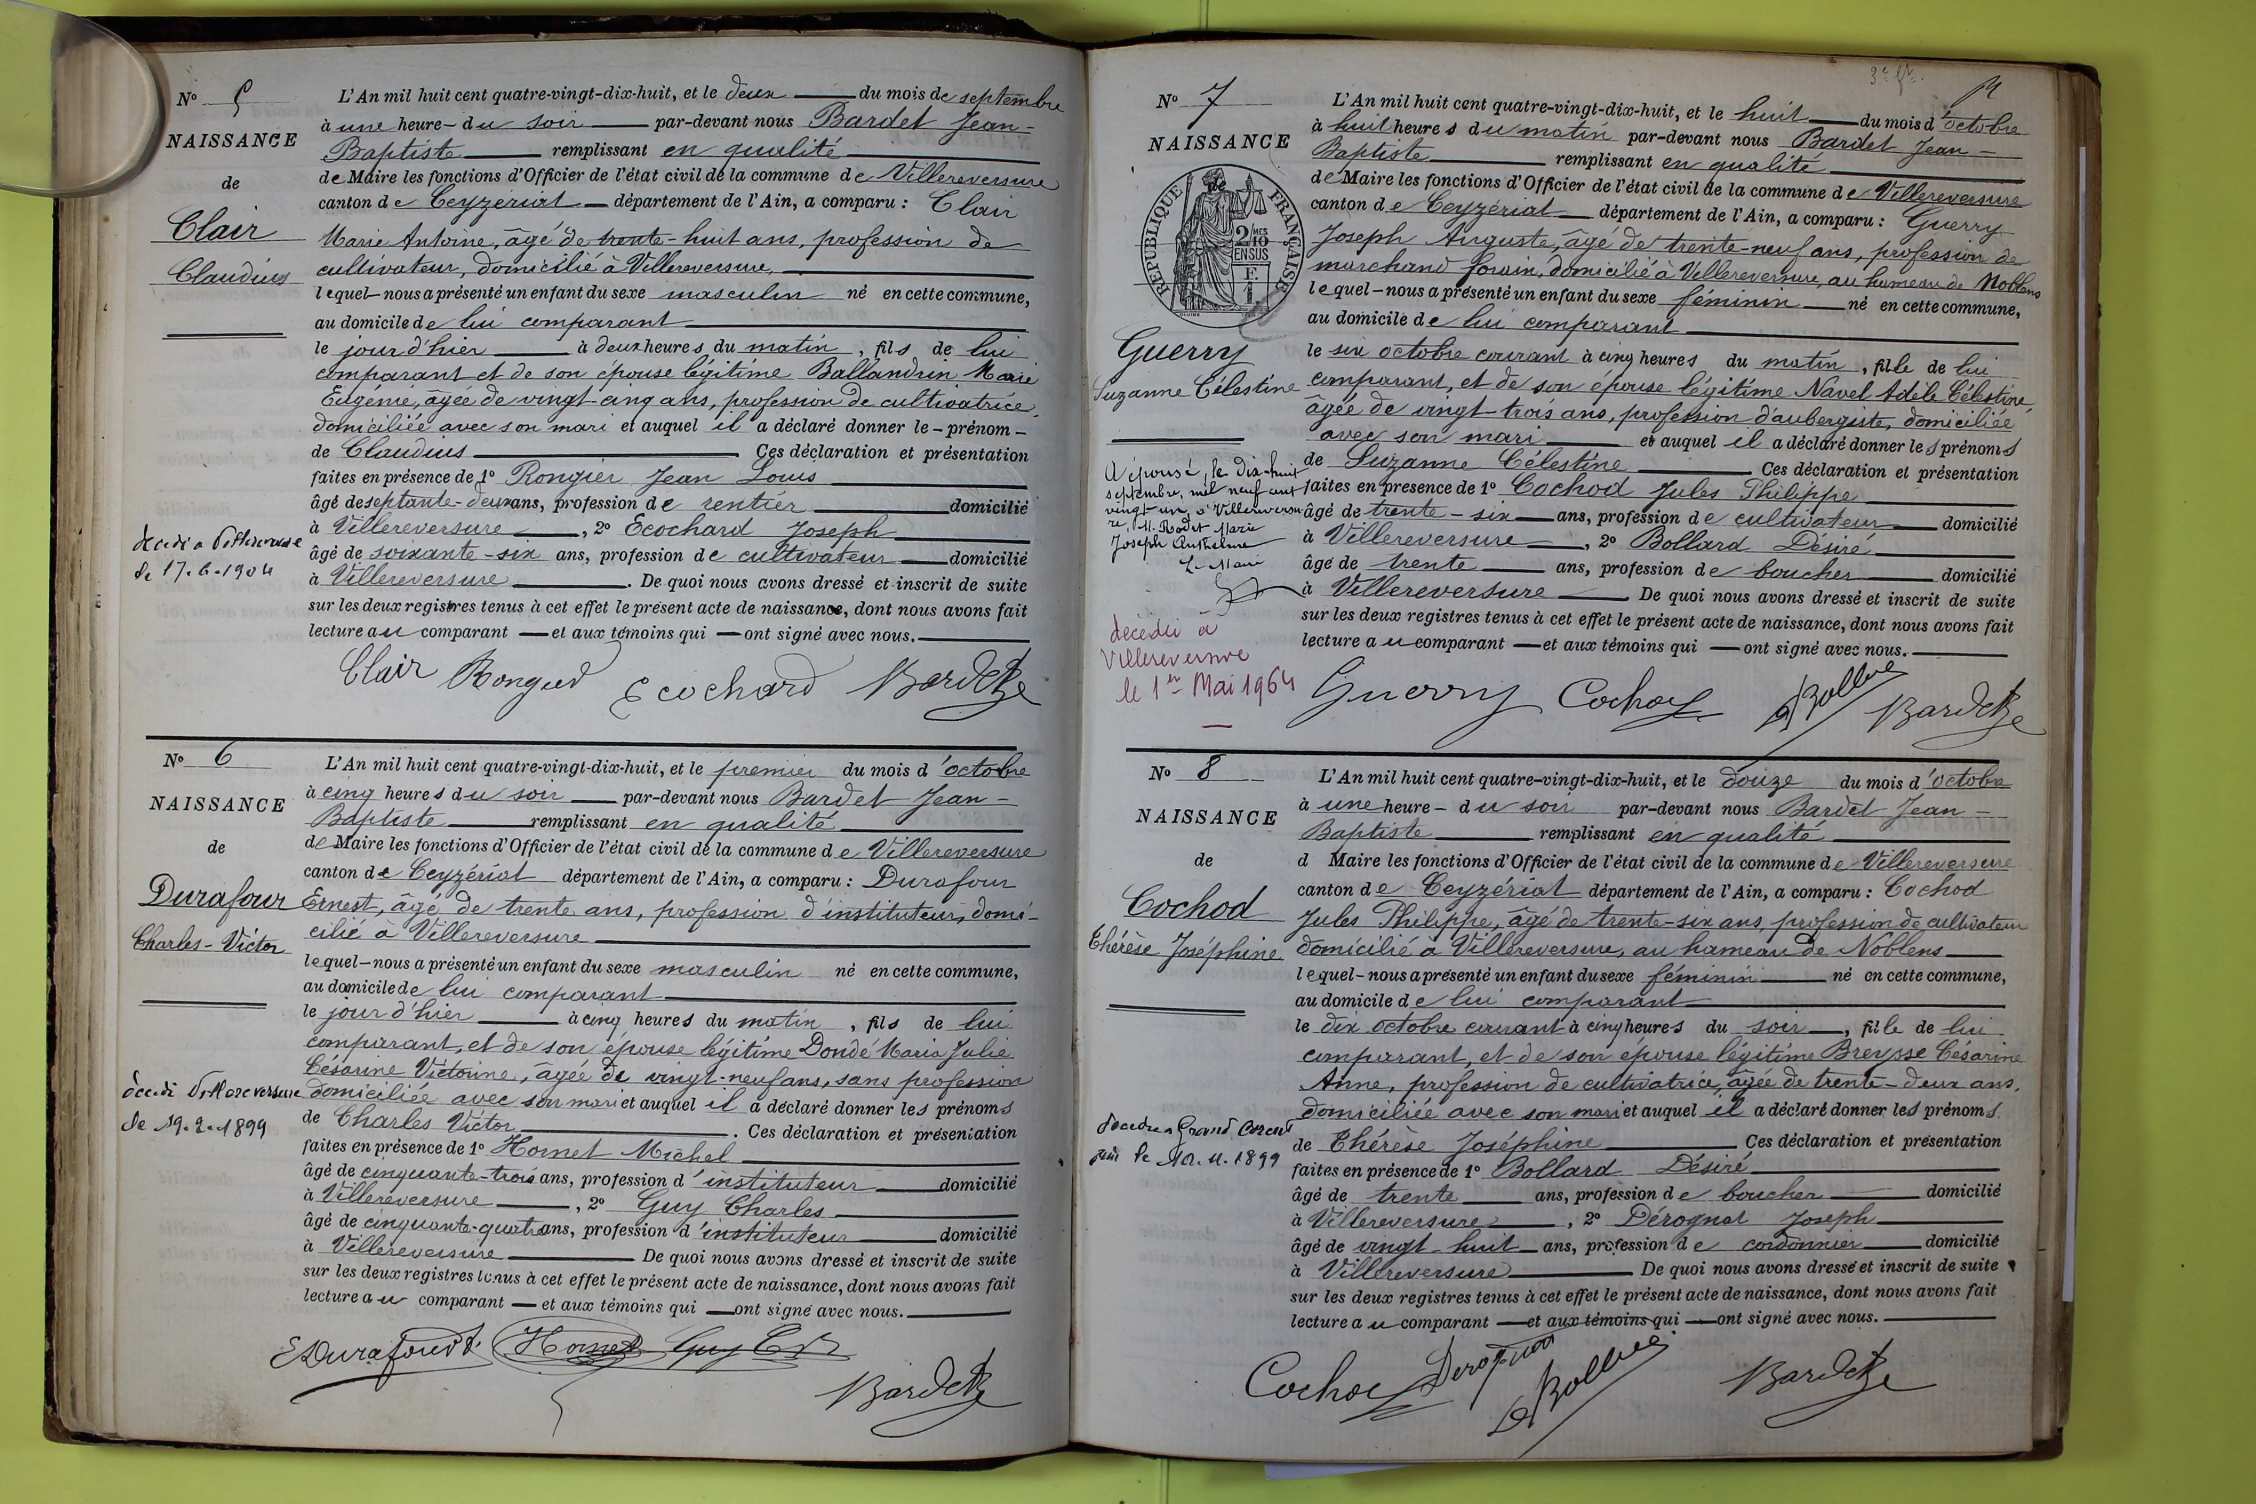 N° 5
NAISSANCE
de
Clair
Claudius
décédé à Villereversure
le 17.6.1904
L'An mil huit cent quatre-vingt-dix-huit, et le deux du mois de septembre
à une heure - du soir par-devant nous Bardet Jean-
Baptiste remplissant en qualité
de Maire les fonctions d'Officier de l'état civil de la commune de Villereversure
canton de Ceyzériat département de l'Ain, a comparu : Clair
Marie Antoine, âgé de trente-huit ans, profession de
cultivateur, domicilié à Villereversure,
lequel - nous a présenté un enfant du sexe masculin né en cette commune,
au domicile de lui comparant
le jour d'hier à deux heures du matin, fils de lui
comparant et de son épouse légitime Ballandrin Marie
Eugénie, âgée de vingt-cinq ans, profession de cultivatrice,
domiciliée avec son mari et auquel il a déclaré donner le - prénom -
de Claudius Ces déclaration et présentation
faites en présence de 1° Rongier Jean Louis
âgé de septante-deux ans, profession de rentier domicilié
à Villereversure, 2° Ecochard Joseph
âgé de soixante-six ans, profession de cultivateur domicilié
à Villereversure. De quoi nous avons dressé et inscrit de suite
sur les deux registres tenus à cet effet le présent acte de naissance, dont nous avons fait
lecture au comparant - et aux témoins qui - ont signé avec nous.
Clair Ecochard Bardet
N° 6
NAISSANCE
de
Durafour
Charles-Victor
décédé Villereversure
le 19.2.1899
L'An mil huit cent quatre-vingt-dix-huit, et le premier du mois d'octobre
à cinq heures du soir par-devant nous Bardet Jean-
Baptiste remplissant en qualité
de Maire les fonctions d'Officier de l'état civil de la commune de Villereversure
canton de Ceyzériat département de l'Ain, a comparu : Durafour
Ernest, âgé de trente ans, profession d'instituteur, domi-
cilié à Villereversure
lequel - nous a présenté un enfant du sexe masculin né en cette commune,
au domicile de lui comparant
le jour d'hier à cinq heures du matin, fils de lui
comparant, et de son épouse légitime Dondé Maria Julie
Césarine Victorine, âgée de vingt-neuf ans, sans profession
domiciliée avec son mari et auquel il a déclaré donner les prénoms
de Charles Victor. Ces déclaration et présentation
faites en présence de 1° Hornet Michel
âgé de cinquante-trois ans, profession d'instituteur domicilié
à Villereversure, 2° Guy Charles
âgé de cinquante-quatre ans, profession d'instituteur domicilié
à Villereversure De quoi nous avons dressé et inscrit de suite
sur les deux registres tenus à cet effet le présent acte de naissance, dont nous avons fait
lecture au comparant - et aux témoins qui - ont signé avec nous.
EDurafour Hornet Guy Ch
Bardet
N° 7
NAISSANCE
RÉPUBLIQUE FRANÇAISE
2/10MES
EN SUS
Guerry
Suzanne Célestine
A épousé, le dix-huit
septembre, mil neuf cent
vingt-un, à Villereversu
re, M. Rodet Marie
Joseph Anthelme
Le Maire
décédée à
Villereversure
le 1er Mai 1964
L'An mil huit cent quatre-vingt-dix-huit, et le huit du mois d'octobre
à huit heures du matin par-devant nous Bardet Jean-
Baptiste remplissant en qualité
de Maire les fonctions d'Officier de l'état civil de la commune de Villereversure
canton de Ceyzériat département de l'Ain, a comparu : Guerry
Joseph Auguste, âgé de trente-neuf ans, profession de
marchand forain, domicilié à Villereversure, au hameau de Noblens
lequel - nous a présenté un enfant du sexe féminin né en cette commune,
au domicile de lui comparant
le six octobre courant à cinq heures du matin, fille de lui
comparant, et de son épouse légitime Navel Adèle Célestine,
âgée de vingt-trois ans, profession d'aubergiste, domiciliée
avec son mari et auquel il a déclaré donner les prénoms
de Suzanne Célestine Ces déclaration et présentation
faites en présence de 1° Cochod Jules Philippe
âgé de trente-six ans, profession de cultivateur domicilié
à Villereversure, 2° Bollard Désiré
âgé de trente ans, profession de boucher domicilié
à Villereversure De quoi nous avons dressé et inscrit de suite
sur les deux registres tenus à cet effet le présent acte de naissance, dont nous avons fait
lecture au comparant - et aux témoins qui - ont signé avec nous.
Guerry Cochod Bardet
N° 8
NAISSANCE
de
Cochod
Thérèse Joséphine
L'An mil huit cent quatre-vingt-dix-huit, et le douze du mois d'octobre
à une heure - du soir par-devant nous Bardet Jean-
Baptiste remplissant en qualité
d Maire les fonctions d'Officier de l'état civil de la commune de Villereversure
canton de Ceyzériat département de l'Ain, a comparu : Cochod
Jules Philippe, âgé de trente-six ans, profession de cultivateur
domicilié à Villereversure, au hameau de Noblens
lequel - nous a présenté un enfant du sexe féminin né en cette commune,
au domicile de lui comparant
le dix octobre courant à cinq heures du soir, fille de lui
comparant, et de son épouse légitime Breysse Césarine
Anne, profession de cultivatrice, âgée de trente-deux ans,
domiciliée avec son mari et auquel il a déclaré donner les prénoms
de Thérèse Joséphine Ces déclaration et présentation
faites en présence de 1° Bollard Désiré
âgé de trente ans, profession de boucher domicilié
à Villereversure, 2° Dérognat Joseph
âgé de vingt-huit ans, profession de cordonnier domicilié
à Villereversure De quoi nous avons dressé et inscrit de suite
sur les deux registres tenus à cet effet le présent acte de naissance, dont nous avons fait
lecture au comparant - et aux témoins qui - ont signé avec nous.
Cochod Derognat Bardet